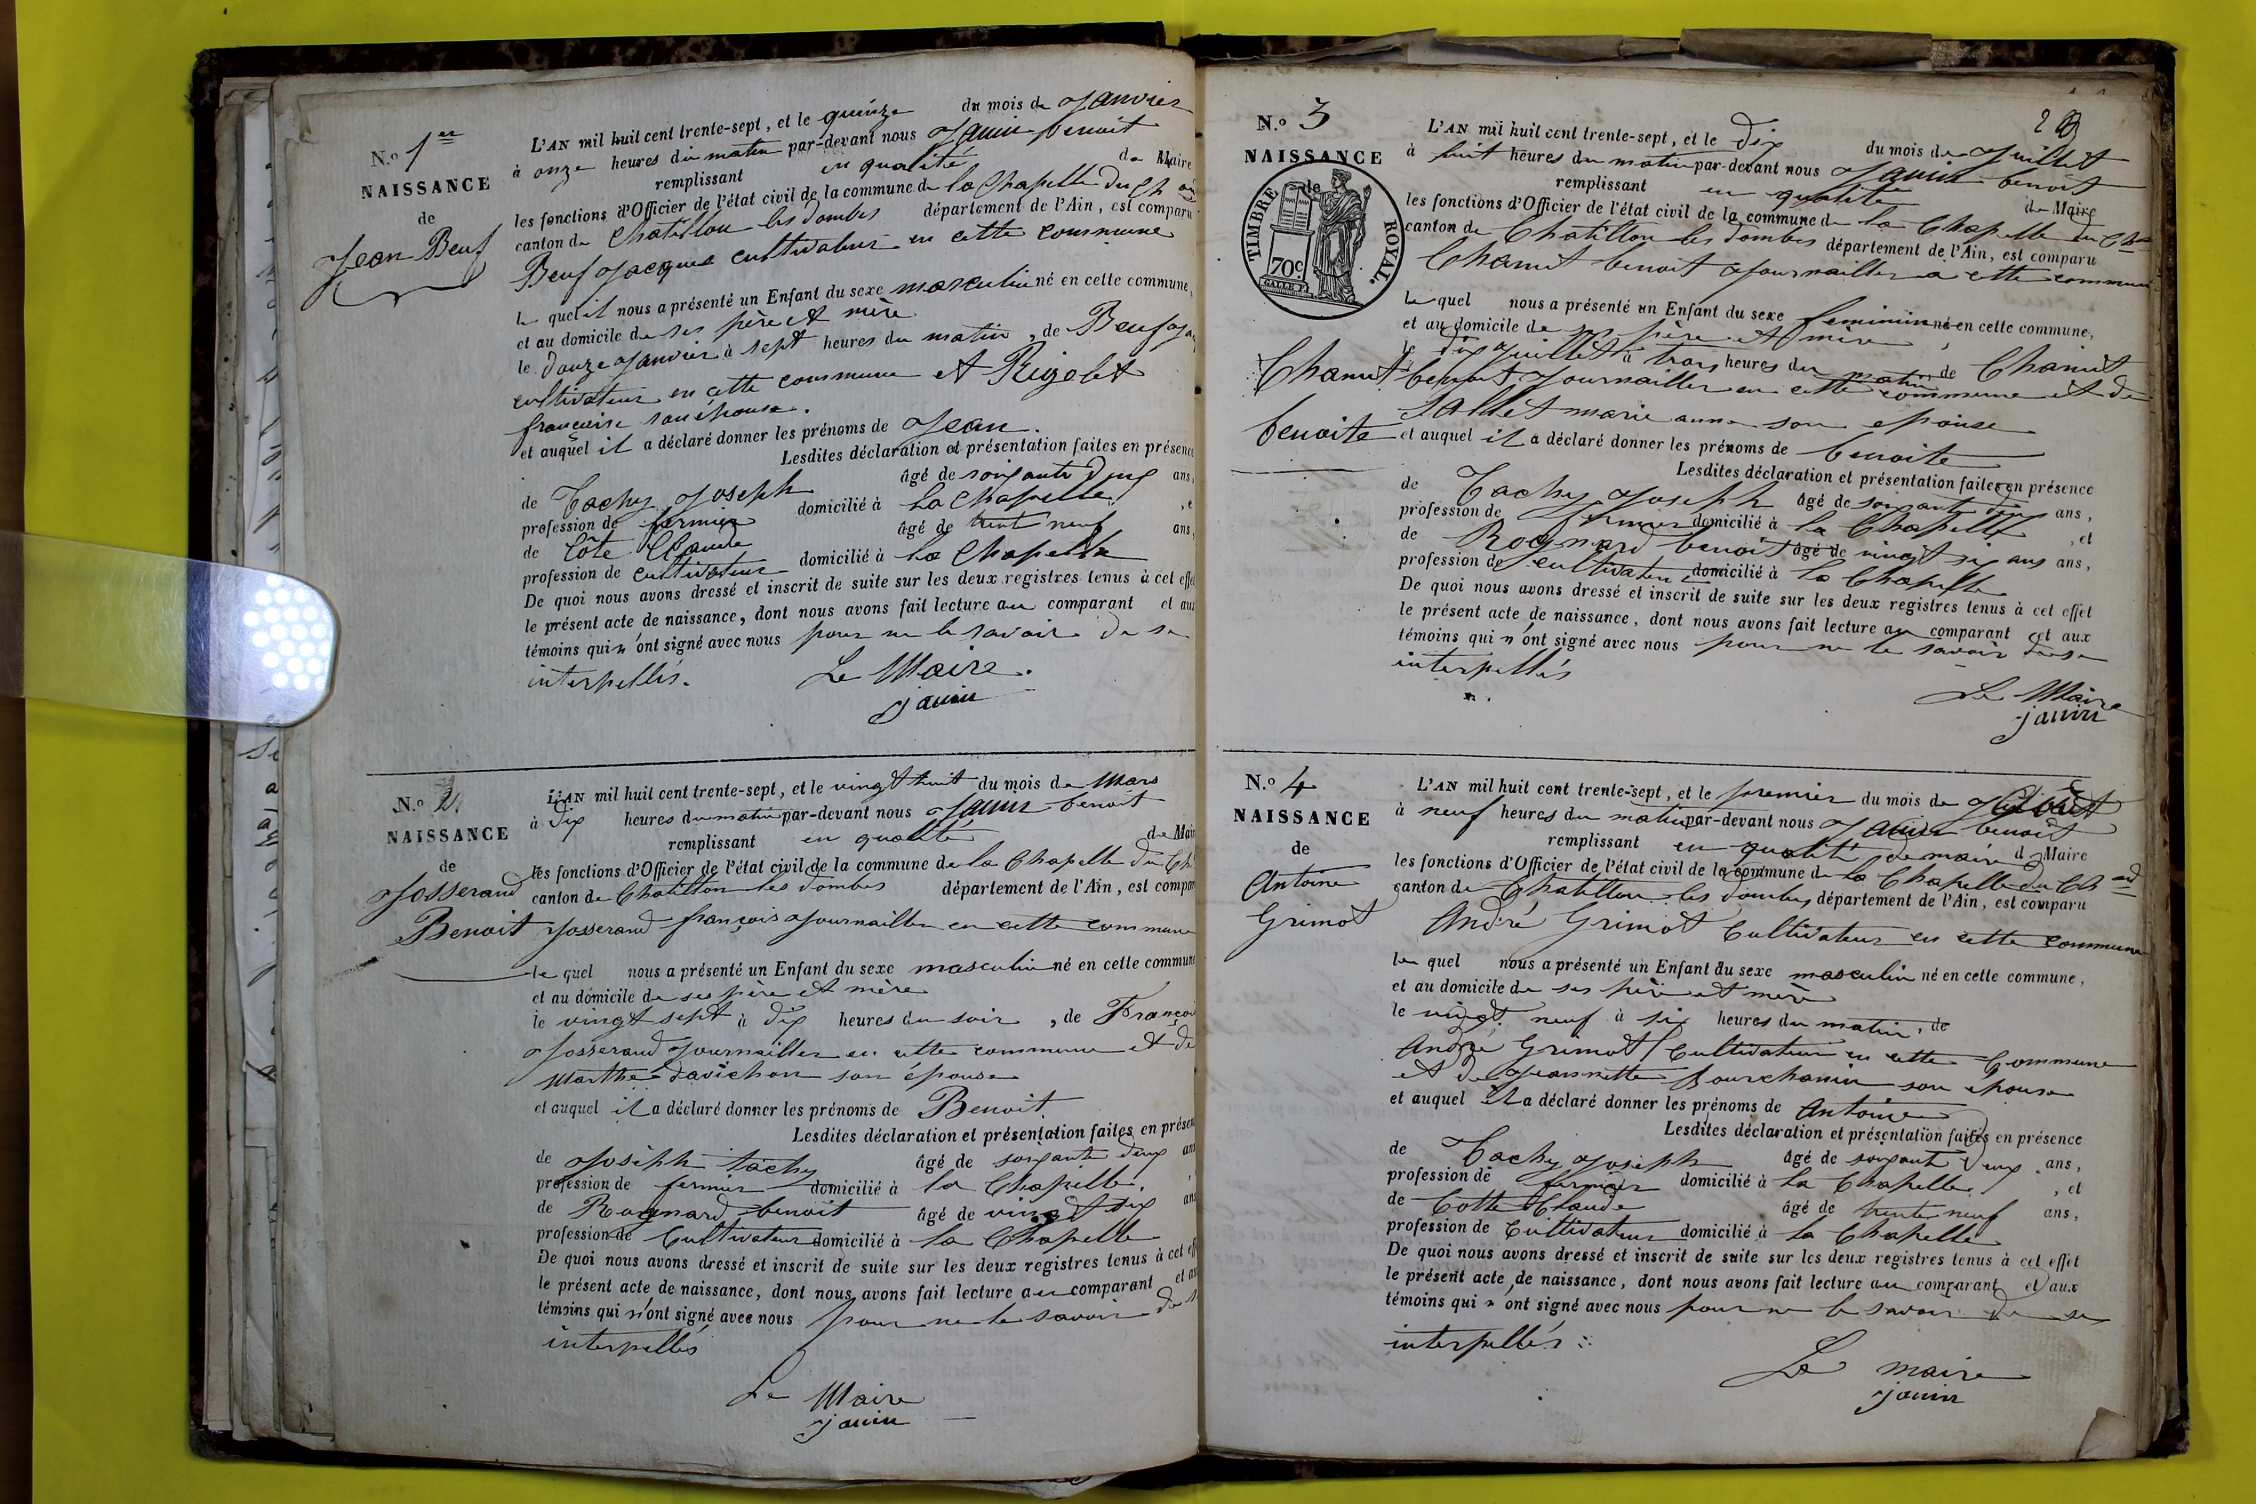 N.o 1er
NAISSANCE
de
Jean Beuf
L'AN mil huit cent trente-sept, et le quinze du mois de Janvier
à onze heures du matin par-devant nous Janin benoit
remplissant en qualité de Maire
les fonctions d'Officier de l'état civil de la commune de la Chapelle du Ch
canton de Chatillon les dombes département de l'Ain, est comparu
Beuf Jacques cultivateur en cette commune
le quel il nous a présenté un Enfant du sexe masculin né en cette commune,
et au domicile de ses père et mère
le douze Janvier à sept heures du matin, de Beuf
cultivateur en cette commune et Rigolet
françoise son épouse.
et auquel il a déclaré donner les prénoms de Jean.
Lesdites déclaration et présentation faites en présence
de Tachy Joseph âgé de soixante deux ans,
profession de fermier domicilié à La Chapelle, e
de Cote Claude âgé de trente neuf ans,
profession de cultivateur domicilié à La Chapelle
De quoi nous avons dressé et inscrit de suite sur les deux registres tenus à cet effet
le présent acte de naissance, dont nous avons fait lecture au comparant et aux
témoins qui n'ont signé avec nous pour ne le savoir de ce
interpellés.
Le Maire.
janin
N.o 2.
NAISSANCE
de
Josserand
Benoit
L'AN mil huit cent trente-sept, et le vingt huit du mois de Mars
à dix heures du matin par-devant nous Janin benoit
remplissant en qualité de Mair
les fonctions d'Officier de l'état civil de la commune de la Chapelle du Ch
canton de Chatillon les dombes département de l'Ain, est compar
Josserand françois Journaillier en cette commune
le quel nous a présenté un Enfant du sexe masculin né en cette commune
et au domicile de ses père et mère
le vingt sept à dix heures du soir, de Françoi
Josserand Journaillier en cette commune et de
Marthe davichon son épouse
et auquel il a déclaré donner les prénoms de Benoit
Lesdites déclaration et présentation faites en présen
de Joseph tachy âgé de soixante deux ans
profession de fermier domicilié à la Chapelle.
de Rognard benoit âgé de vingt six ans
profession de Cultivateur domicilié à la Chapelle
De quoi nous avons dressé et inscrit de suite sur les deux registres tenus à cet eff
le présent acte de naissance, dont nous avons fait lecture au comparant et au
témoins qui n'ont signé avec nous pour ne le savoir de
interpellés
Le Maire
janin
N.o 3
NAISSANCE
de
TIMBRE ROYAL.
70c.
Chanut
benoite
L'AN mil huit cent trente-sept, et le dix du mois de Juillet
à huit heures du matin par-devant nous Janin benoit
remplissant en qualité de Maire
les fonctions d'Officier de l'état civil de la commune de la Chapelle du Ch
canton de Chatillon les dombes département de l'Ain, est comparu
Chanut benoit Journaillier a cette commune
le quel nous a présenté un Enfant du sexe feminin né en cette commune,
et au domicile de ses père et mère
le dix Juillet à trois heures du matin de Chanut
benoit Journaillier en cette commune et de
Sallet marie anne son epouse
et auquel il a déclaré donner les prénoms de benoite
Lesdites déclaration et présentation faites en présence
de Tachy Joseph âgé de soixante deux ans,
profession de fermier domicilié à la Chapelle, et
de Rognard benoit âgé de vingt six ans ans,
profession de cultivateur domicilié à la Chapelle
De quoi nous avons dressé et inscrit de suite sur les deux registres tenus à cet effet
le présent acte de naissance, dont nous avons fait lecture au comparant et aux
témoins qui n'ont signé avec nous pour ne le savoir de ce
interpellés
Le Maire
janin
N.o 4
NAISSANCE
de
Antoine
Grimot
L'AN mil huit cent trente-sept, et le premier du mois de
à neuf heures du matin par-devant nous Janin benoit
remplissant en qualité de maire d Maire
les fonctions d'Officier de l'état civil de la commune de la Chapelle du Ch ard
canton de Chatillon les dombes, département de l'Ain, est comparu
André Grimot Cultivateur en cette commune
le quel nous a présenté un Enfant du sexe masculin né en cette commune,
et au domicile de ses père et mère
le vingt neuf à six heures du matin, de
André Grimot Cultivateur en cette Commune
et de Jeannette Bourchanin son épouse
et auquel il a déclaré donner les prénoms de Antoine
Lesdites déclaration et présentation faites en présence
de Tachy Joseph âgé de soixante deux ans,
profession de fermier domicilié à la Chapelle, et
de Cotte Claude âgé de trente neuf ans,
profession de Cultivateur domicilié à la Chapelle
De quoi nous avons dressé et inscrit de suite sur les deux registres tenus à cet effet
le présent acte de naissance, dont nous avons fait lecture au comparant et aux
témoins qui n'ont signé avec nous pour ne le savoir de ce
interpellés
Le maire
janin